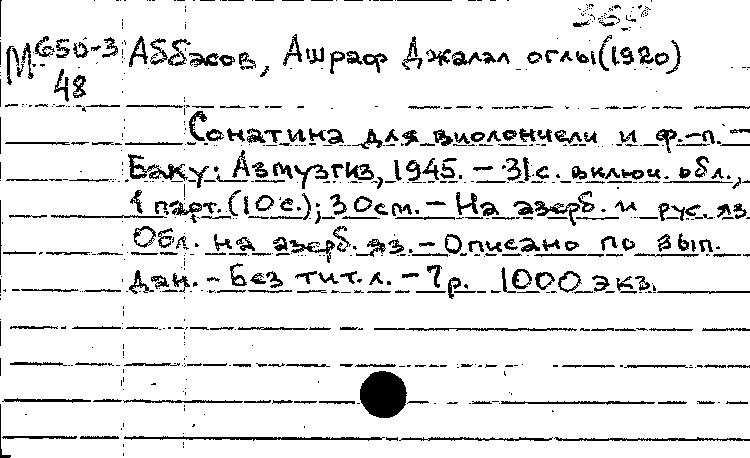 М 650-3 Аббасов, Ашраф Джалал оглы (1920)
48
Сонатина для виолончели и ф.-п. -
Баку: Азмузгиз, 1945. - 31с. включ. обл.,
1 парт. (10с.); 30см. - На азерб. и рус. яз.
Обл. на азерб. яз. - Описано по вып.
дан. - Без тит. л. - 7р. 1000 экз.